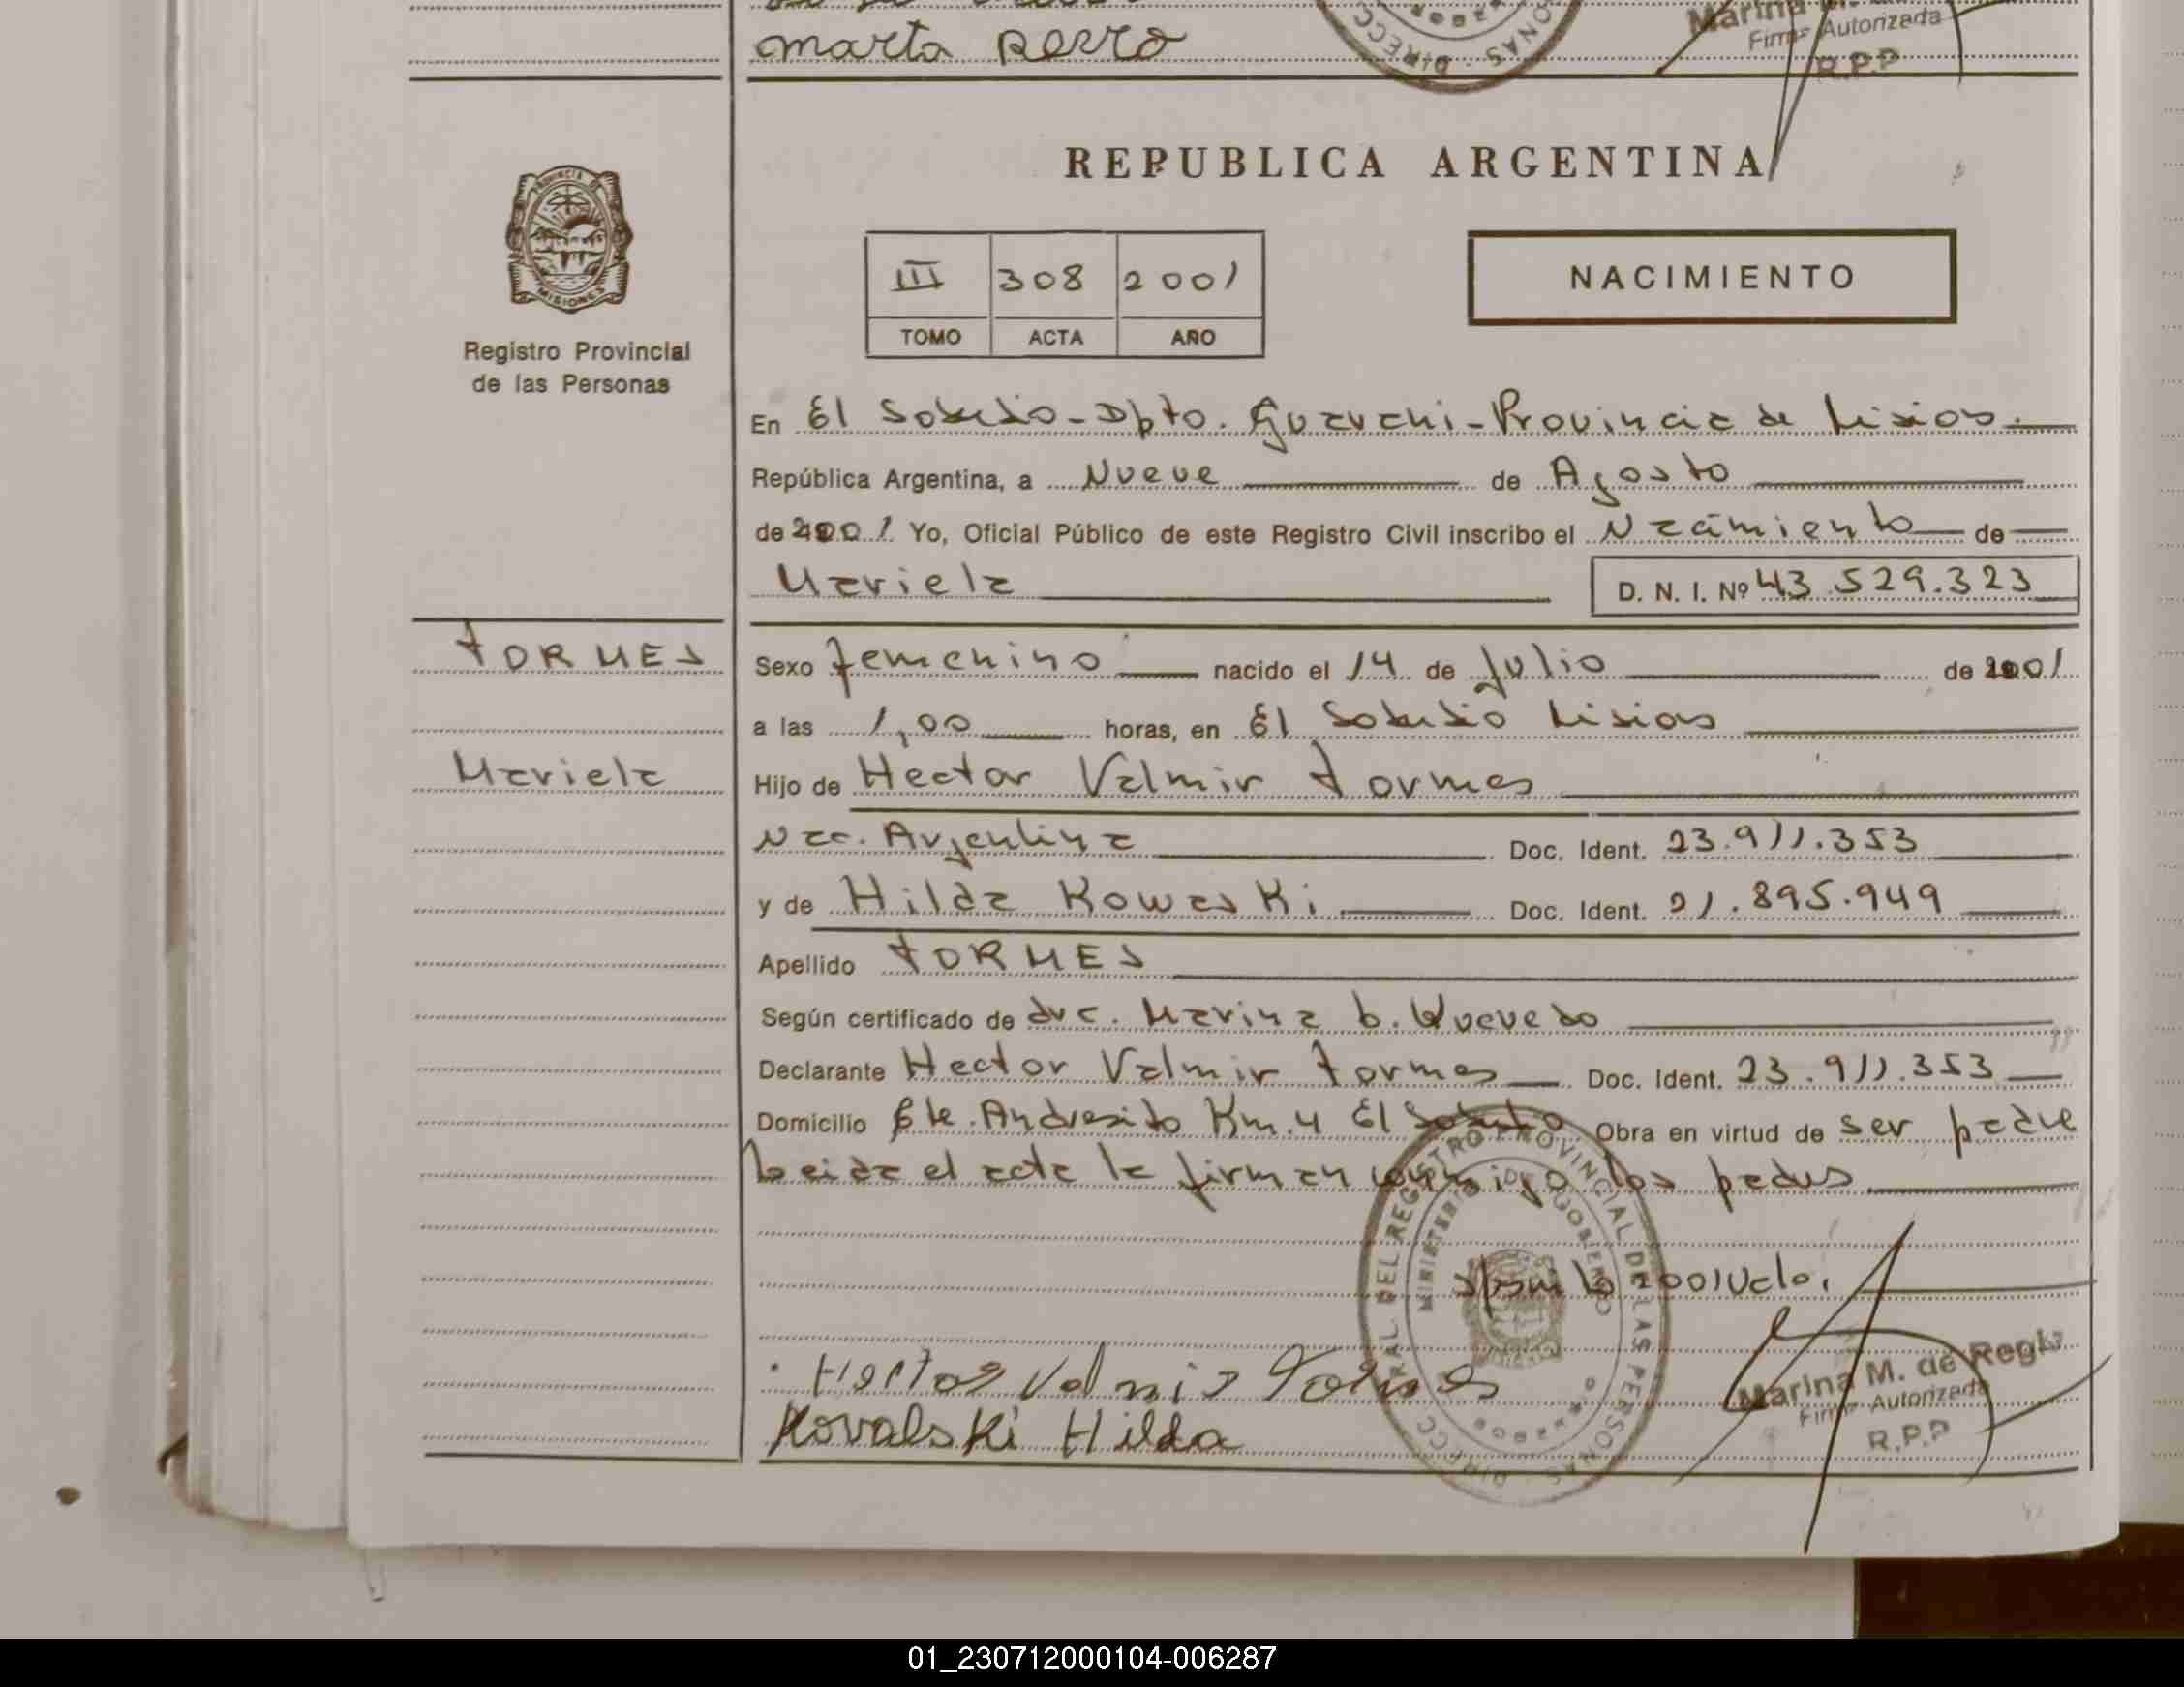 marta
Marina M.
Firma Autorizada
R.P.P
REPUBLICA ARGENTINA
PROVINCIA DE
MISIONES
Registro Provincial
de las Personas
III 308 2001
TOMO ACTA AÑO
NACIMIENTO
En El Soberbio - Dpto. Guaraní - Provincia de Misiones.
República Argentina, a Nueve de Agosto
de 2001 Yo, Oficial Público de este Registro Civil inscribo el Nacimiento de
Mariela D. N. I. Nº 43.529.323
TORMES
Sexo femenino nacido el 14 de Julio de 2001
a las 1,00 horas, en El Soberbio Misiones
Mariela
Hijo de Hector Valmir Tormes
Nac. Argentina Doc. Ident. 23.911.353
y de Hilda Kowaski Doc. Ident. 21.895.949
Apellido TORMES
Según certificado de Marina b. Quevedo
Declarante Hector Valmir Tormes Doc. Ident. 23.911.353
Domicilio Andresito Km. 4 El Soberbio Obra en virtud de ser padre
Leida el acta la firman conmigo los padres
DIRECC GRAL DEL REGISTRO PROVINCIAL DE LAS PERSONAS
MINISTERIO DE GOBIERNO
Hector Valmir Tormes
Kovalski Hilda
Marina M. de Regis
Firma Autorizada
R.P.P
01_230712000104-006287